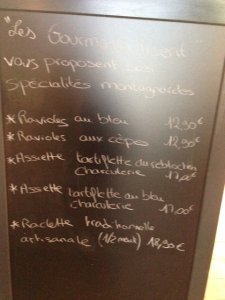 "Les Gourmandisent
vous proposent ses
spécialités montagnardes
* Ravioles au bleu 12,90€
* Ravioles aux cèpes 12,90€
* Assiette tartiflette du reblochon
charcuterie 17,00€
* Assiette tartiflette au bleu
charcuterie 17,00€
* Raclette traditionnelle
artisanale (1/2 meule) 18,90€